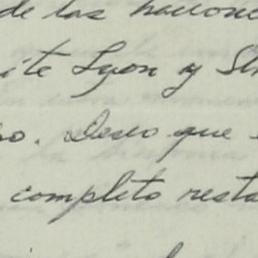 de las nacione
ite Lyon y St
o. Deseo que
completo resta